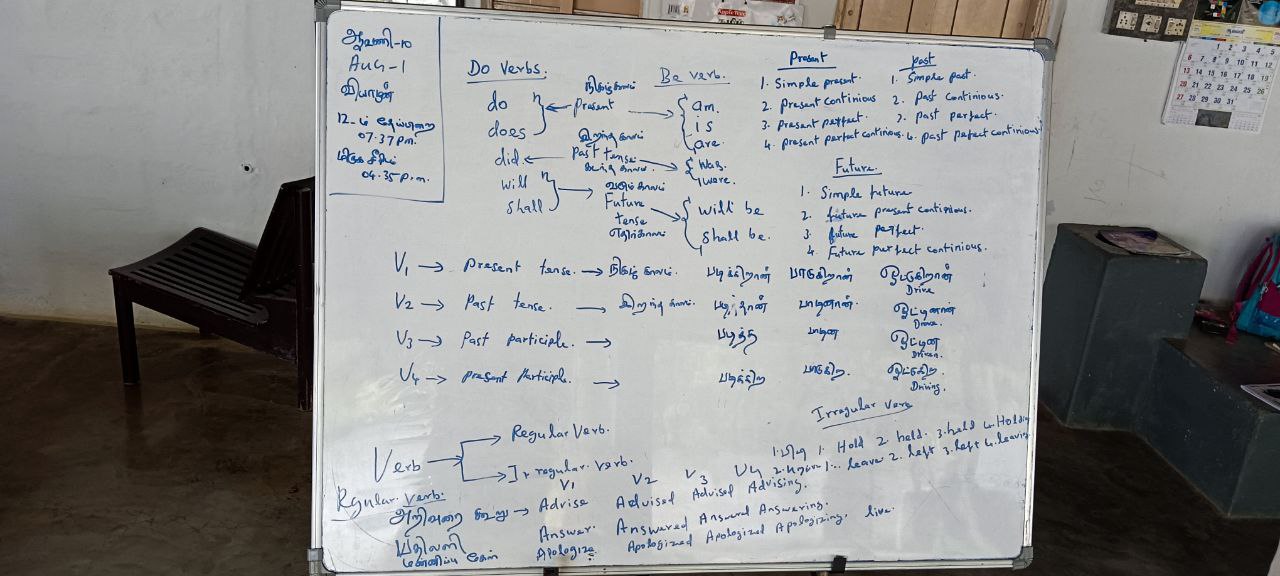 ஆவணி-10
AUG-1
வியாழன்
07.37 p.m.
04.35 p.m.
Do Verbs.
Be verb.
நிகழ்காலம்
do
Present
am.
does
is
are
இறந்த காலம்
did
Past tense
was.
were.
will
Shall
Future
tense
எதிர்காலம்
will be
Shall be.
Present
1. Simple present.
2. Present continious
3. Present perfect.
4. present perfect continious.
past
1. Simple past.
2. Past continious.
3. past perfect.
4. past pefect continious
Future.
1. Simple future
2. future present continious.
3. future perfect.
4. Future perfect continious.
V1 → Present tense. → நிகழ் காலம். படிக்கிறான் பாடுகிறான் ஓட்டுகிறான்
Drive
V2 → Past tense. → இறந்த காலம். படித்தான் பாடினான். ஓட்டினான்
Drove.
V3 → Past participle. → படித்த பாடின ஓட்டின
Driven.
V4 → present participle. → படிக்கிற பாடுகிற. ஓட்டுகிற.
Driving.
Irregular verb
1. Hold 2. held. 3. held 4. Holding
leave 2. left 3. left 4. leaving
Verb
Regular Verb.
Ir regular verb.
V1 V2 V3 V4
Rgular. Verb:
அறிவுரை கூறு → Advise Advised Advised Advising.
பதிலளி Answer. Answered Answerd Answering.
மன்னிப்பு கேள் Apologize. Apologized Apologized Apologizing. live.